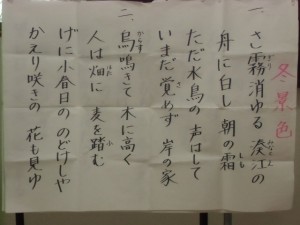 冬景色
一、さ霧消ゆる 湊江の
舟に白し 朝の霜
ただ水鳥の 声はして
いまだ覚めず 岸の家
二、烏鳴きて 木に高く
人は畑に 麦を踏む
げに小春日の のどけしや
かえり咲きの 花も見ゆ